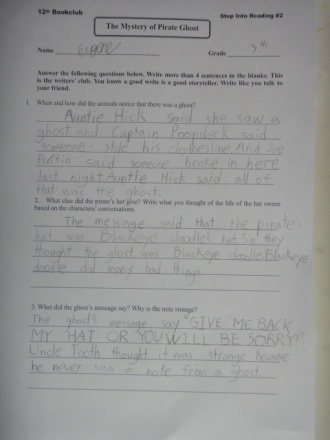 12th Bookclub
Step Into Reading #2
The Mystery of Pirate Ghost
Name Eugene
Grade 3th
Answer the following questions below. Write more than 4 sentences in the blanks. This
is the writers' club. You know a good write is a good storyteller. Write like you talk to
your friend.
1. When and how did the animals notice that there was a ghost?
Auntie Hick said she saw a
ghost and Captain Poopdeck said
someone stole his clothesline. And Joe
Puffin said someone broke in here
last night. Auntie Hick said all of
that was the ghost.
2. What clue did the pirate's hat give? Write what you thought of the life of the hat owner
based on the characters' conversations.
The message said that the pirate's
hat was Blackeye doodles hat So they
thought the ghost was Blackeye doodle. Blackeye
doodle did many bad things
3. What did the ghost's message say? Why is the note strange?
The ghost's message say "GIVE ME BACK
MY HAT OR YOU WILL BE SORRY!"
Uncle Tooth thought it was strange because
he never saw a note from a ghost.